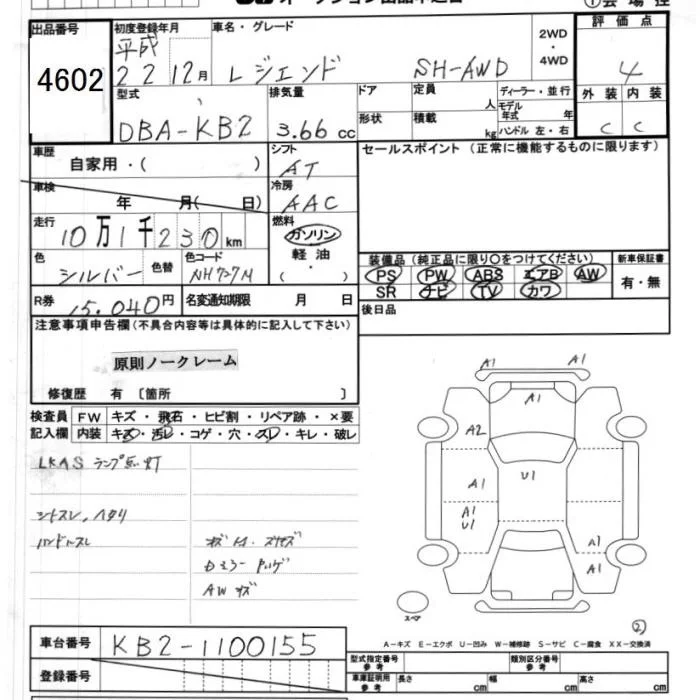 出品番号
4602
初度登録年月 車名・グレード
平成
22 12月 レジェンド SH-AWD
2WD
・
4WD
評価点
4
外装 内装
C C
型式
DBA-KB2
排気量
3.66 cc
ドア 定員 人
形状 積載 kg
ディーラー・並行
モデル年式 年
ハンドル 左・右
車歴
自家用・( )
シフト
AT
車検
年 月( 日)
冷房
AAC
走行
10万1千230km
燃料
ガソリン
軽油
・
( )
色
シルバー
色替
色コード
NH737M
R券 15,040円 名変通知期限 月 日
セールスポイント (正常に機能するものに限ります)
装備品 (純正品に限り○をつけてください) 新車保証書
PS PW ABS エアB AW
SR ナビ TV カワ
有・無
後日品
注意事項申告欄(不具合内容等は具体的に記入して下さい)
原則ノークレーム
修復歴 有 〔箇所 〕
検査員 FW キズ・飛石・ヒビ割・リペア跡・×要
記入欄 内装 キズ・汚レ・コゲ・穴・スレ・キレ・破レ
LKAS ランプ点灯
シートスレ,ヘタリ
ハンドルスレ
AW キズ
A1 A1
A1
A2
U1
A1
A1
U1
A1
A1
スペア
②
A-キズ E-エクボ U-凹み W-補修跡 S-サビ C-腐食 XX-交換済
車台番号 KB2-1100155
登録番号
型式指定番号 参考 類別区分番号 参考
車庫証明用 参考 長さ cm 幅 cm 高さ cm